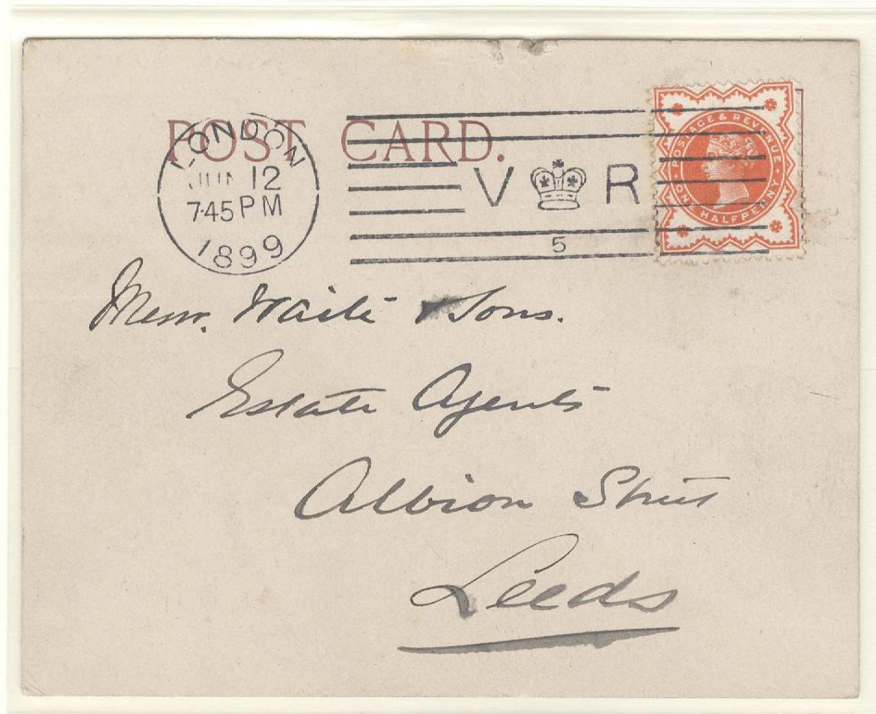 POST CARD.
LONDON
JUN 12
7·45 PM
1899
V R
5
POSTAGE & REVENUE
ONE HALFPENNY
Messr. Waite & Sons.
Estate Agents
Albion Street
Leeds